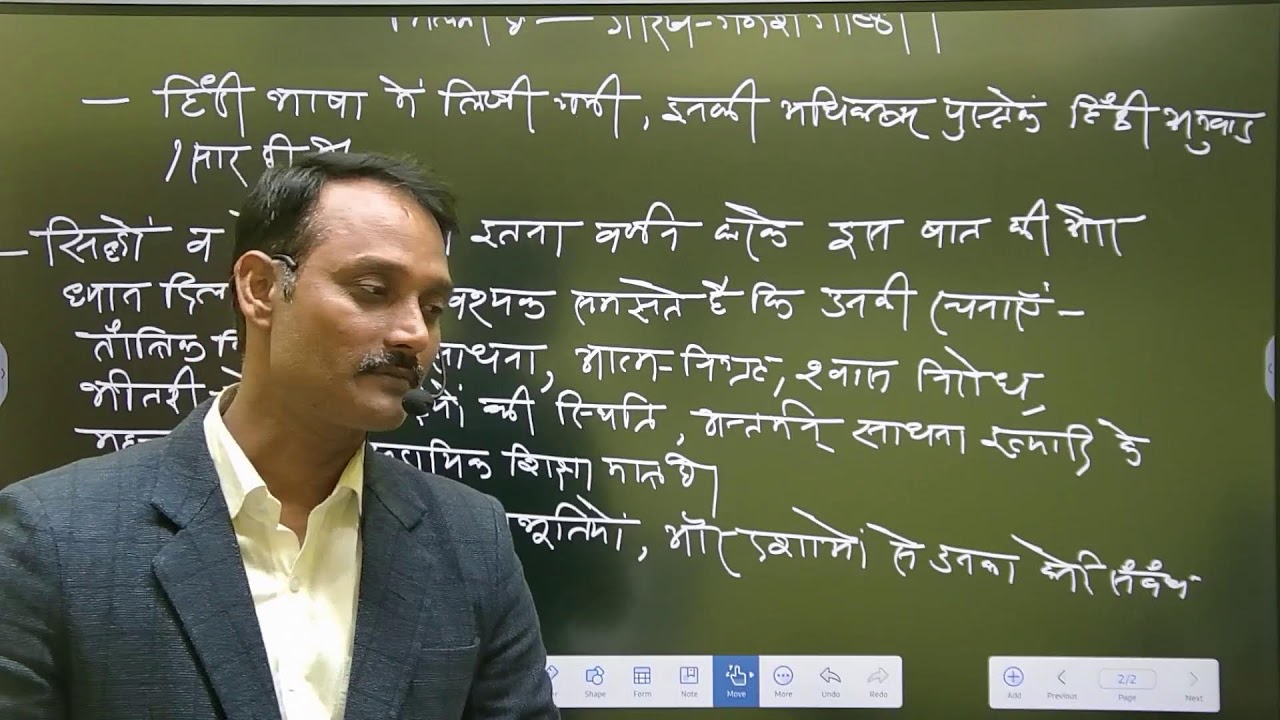 गोरख-गणेश गोष्ठी।
— हिंदी भाषा में लिखी गयी, इनकी अधिकतम पुस्तकें हिंदी अनुवाद
/सार ही है
— सिद्धों व इतना वर्णन करके इस बात की ओर
ध्यान दिला वश्यक समझते हैं कि उनकी रचनाएँ-
ताँत्रिक साधना, आत्म-निग्रह, श्वास निरोध,
भीतरी की स्थिति, अन्तर्मुख साधना इत्यादि के
शिक्षा मात्र है।
भूतियों, और दशाओं से उनका कोई संबंध
Shape
Form
Note
Move
More
Undo
Redo
Add
Previous
2/2
Page
Next